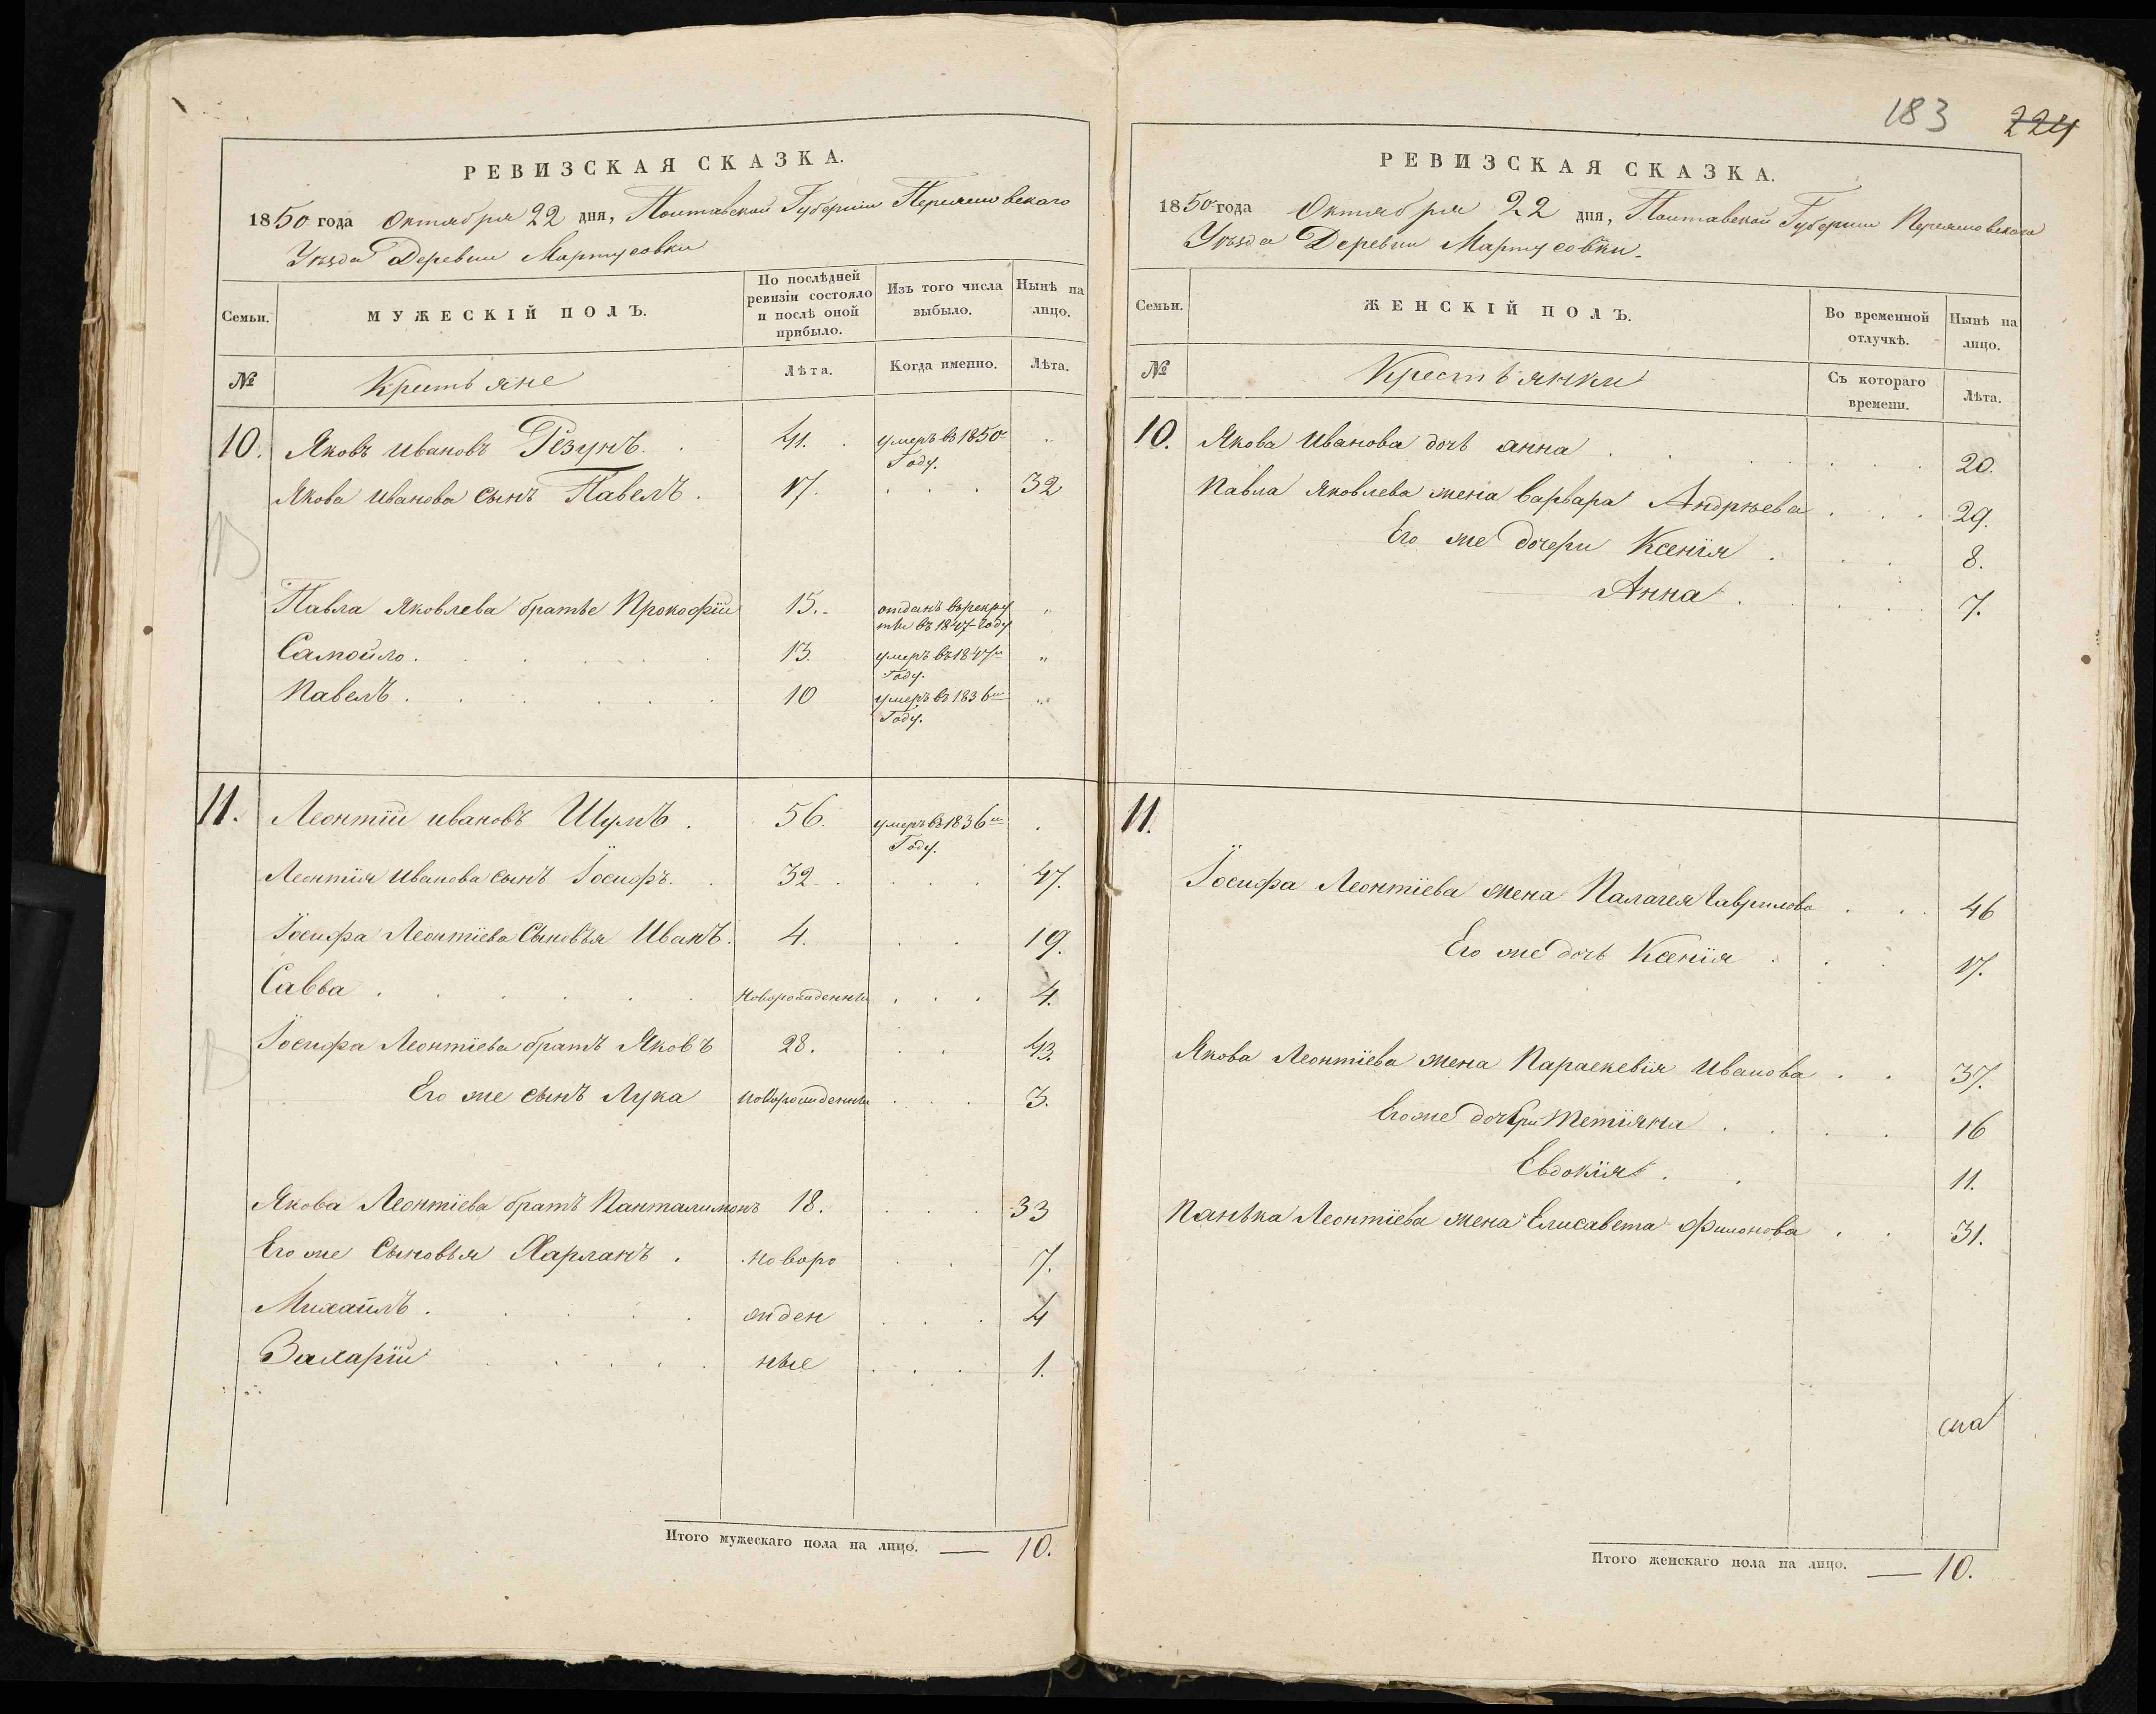 РЕВИЗСКАЯ СКАЗКА.
1850 года Октября 22 дня, Полтавской Губерніи Переяславского
Уѣзда Деревни Мартусовки
Семьи.
МУЖЕСКІЙ ПОЛЪ.
По послѣдней ревизіи состояло и послѣ оной прибыло.
Изъ того числа выбыло.
Нынѣ на лицо.
№
Крестьяне
Лѣта.
Когда именно.
Лѣта.
10. Яковъ Ивановъ Резунъ. 41. умеръ въ 1850 „
Году.
Якова Иванова сынъ Павелъ. 17. 32
Павла Яковлева братье Прокофій 15. отданъ въ рекру „
ты въ 1847 году
Самойло. 13. умеръ въ 1847м „
Году.
Павелъ. 10 умеръ въ 1836м „
Году.
11. Леонтій Ивановъ Шумъ. 56. умеръ въ 1836м
Году.
Леонтія Иванова сынъ Іосифъ. 32 47.
Іосифа Леонтіева Сыновья Иванъ. 4. 19.
Савва. новорожденный 4.
Іосифа Леонтіева братъ Яковъ 28. 43.
Его же сынъ Лука новорожденный 3.
Якова Леонтіева братъ Панталимонъ 18. 33
Его же Сыновья Харланъ. новоро 7.
Михаилъ. жден 4
Захарій ные 1.
Итого мужескаго пола на лицо. — 10.
183 224
РЕВИЗСКАЯ СКАЗКА.
1850 года Октября 22 дня, Полтавской Губерніи Переяславского
Уѣзда Деревни Мартусовки.
Семьи.
ЖЕНСКІЙ ПОЛЪ.
Во временной отлучкѣ.
Нынѣ на лицо.
№
Крестьянки
Съ котораго времени.
Лѣта.
10. Якова Иванова дочь анна 20.
Павла Яковлева жена Варвара Андрѣева 29.
Его же дочери Ксенія 8.
Анна 7.
11.
Іосифа Леонтіева жена Палагея Гаврилова 46
Его же дочь Ксенія 17.
Якова Леонтіева жена Параскевія Иванова 37.
Его же дочери Тетіяна 16
Евдокія 11.
Панька Леонтіева жена Елисавета Филонова 31.
Итого женскаго пола на лицо. — 10.